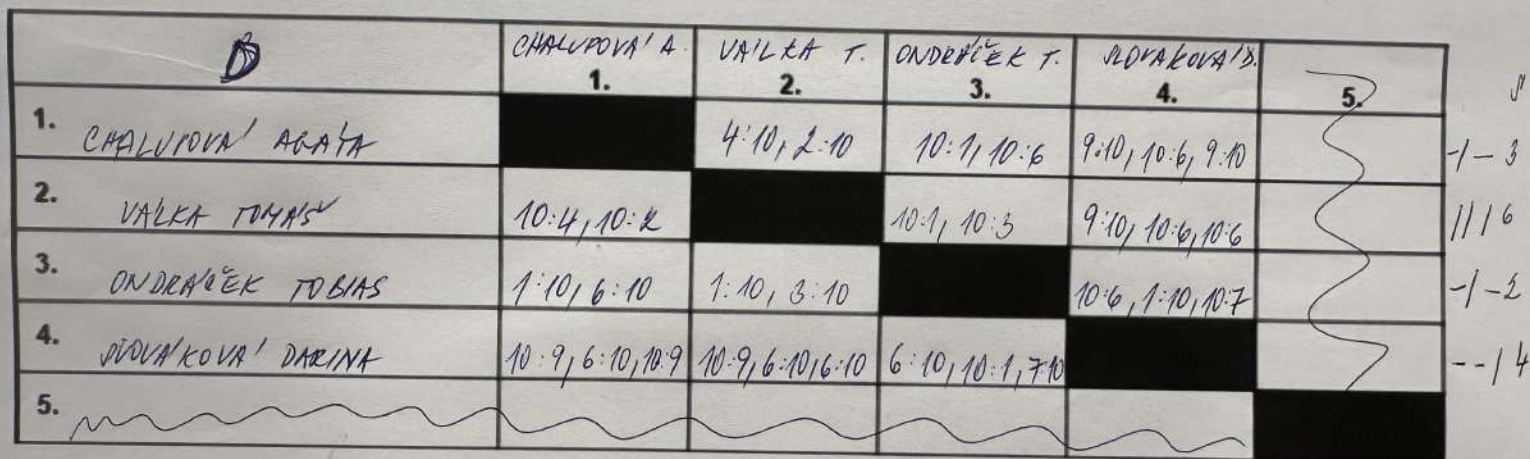 D CHALUPOVÁ A. VÁLKA T. ONDRÁČEK T. SLOVÁKOVÁ D.
1. 2. 3. 4. 5.
1. CHALUPOVÁ AGÁTA 4:10, 2:10 10:1, 10:6 9:10, 10:6, 9:10 -1- 3
2. VÁLKA TOMÁŠ 10:4, 10:2 10:1, 10:3 9:10, 10:6, 10:6 111 6
3. ONDRÁČEK TOBIAS 1:10, 6:10 1:10, 3:10 10:6, 1:10, 10:7 -1- 2
4. SLOVÁKOVÁ DARINA 10:9, 6:10, 10:9 10:9, 6:10, 6:10 6:10, 10:1, 7:10 --1 4
5.